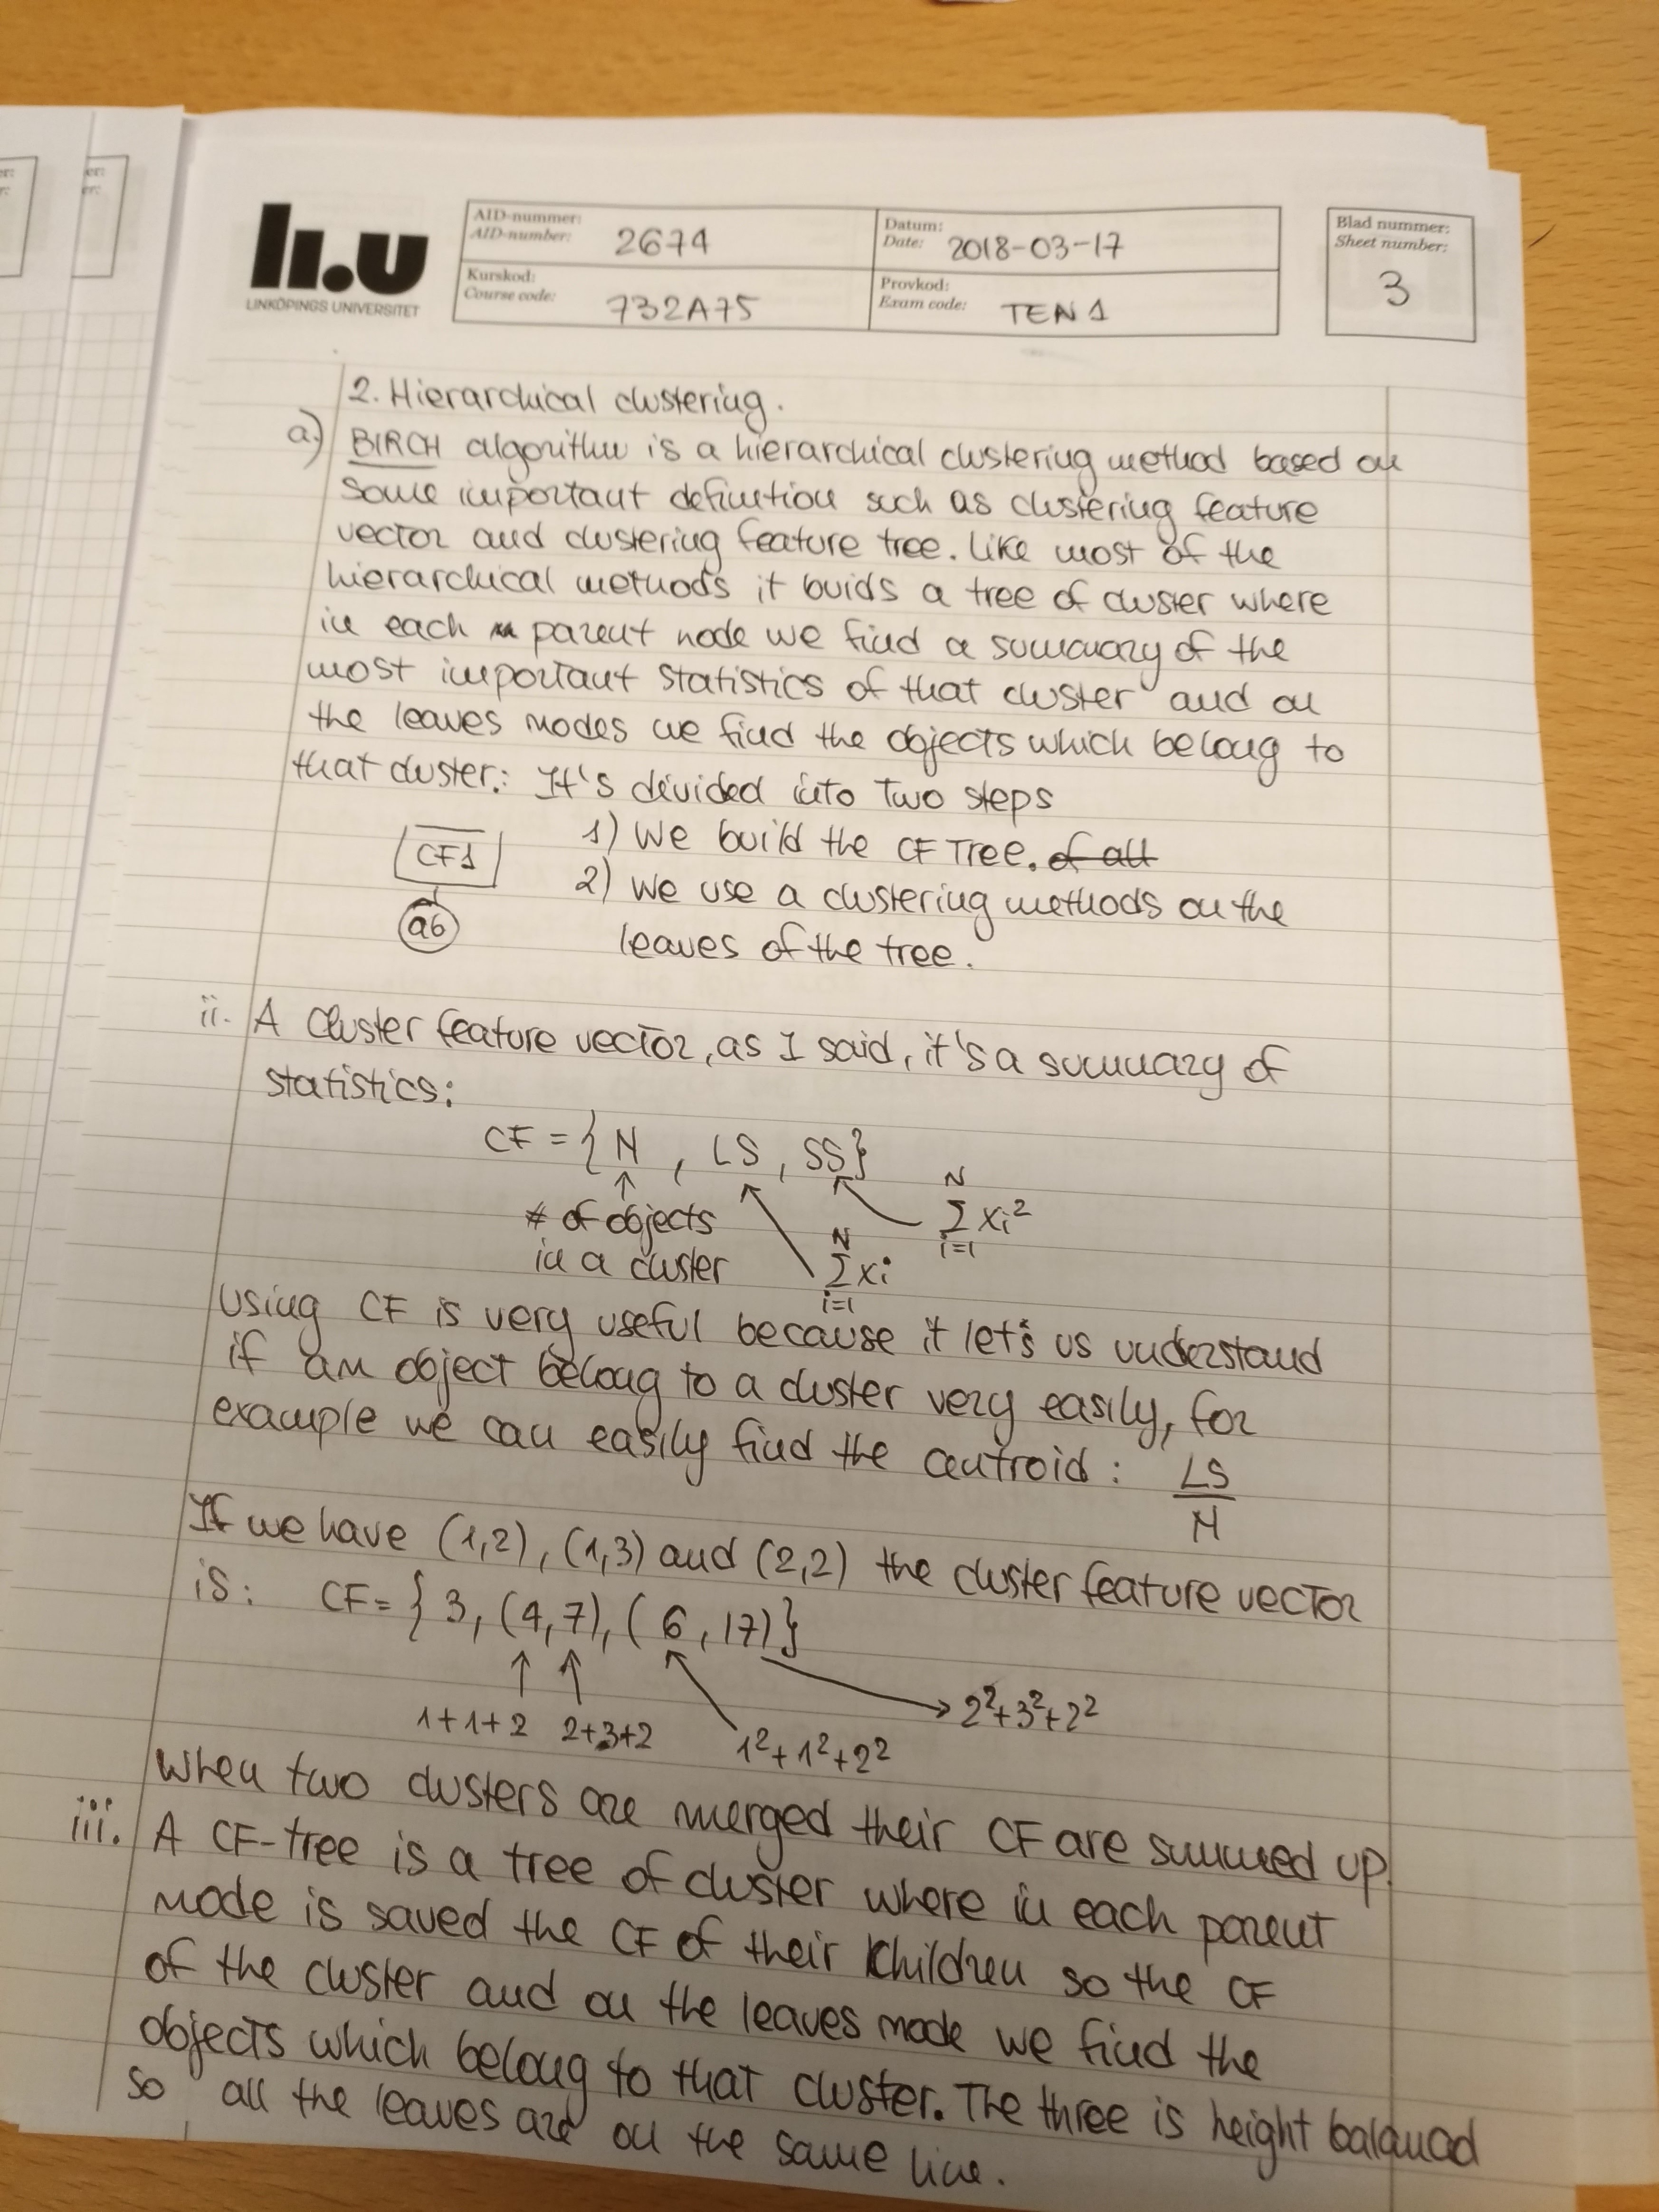 er:
r:
er:
er:
li.u
LINKÖPINGS UNIVERSITET
AID-nummer:
AID-number: 2674
Datum:
Date: 2018-03-17
Kurskod:
Course code: 732A75
Provkod:
Exam code: TEN1
Blad nummer:
Sheet number:
3
2. Hierarchical clustering.
a) BIRCH algorithm is a hierarchical clustering method based on
some important definition such as clustering feature
vector and clustering feature tree. Like most of the
hierarchical methods it buids a tree of cluster where
in each parent node we find a summary of the
most important statistics of that cluster and on
the leaves nodes we find the objects which belong to
that cluster: It's divided into two steps
1) We build the CF Tree. of all
2) We use a clustering methods on the
leaves of the tree.
CF1
a6
ii. A Cluster feature vector, as I said, it's a summary of
statistics:
CF = { N , LS , SS}
# of objects
in a cluster
N
Σ xi
i=1
N
Σ xi²
i=1
Using CF is very useful because it let's us understand
if an object belong to a cluster very easily, for
example we can easily find the centroid: LS
N
If we have (1,2), (1,3) and (2,2) the cluster feature vector
is: CF = { 3, (4,7), (6,17)}
1+1+2 2+3+2 1²+1²+2² 2²+3²+2²
When two clusters are merged their CF are summed up.
iii. A CF-tree is a tree of cluster where in each parent
node is saved the CF of their children so the CF
of the cluster and on the leaves node we find the
objects which belong to that cluster. The three is height balanced
so all the leaves are on the same line.